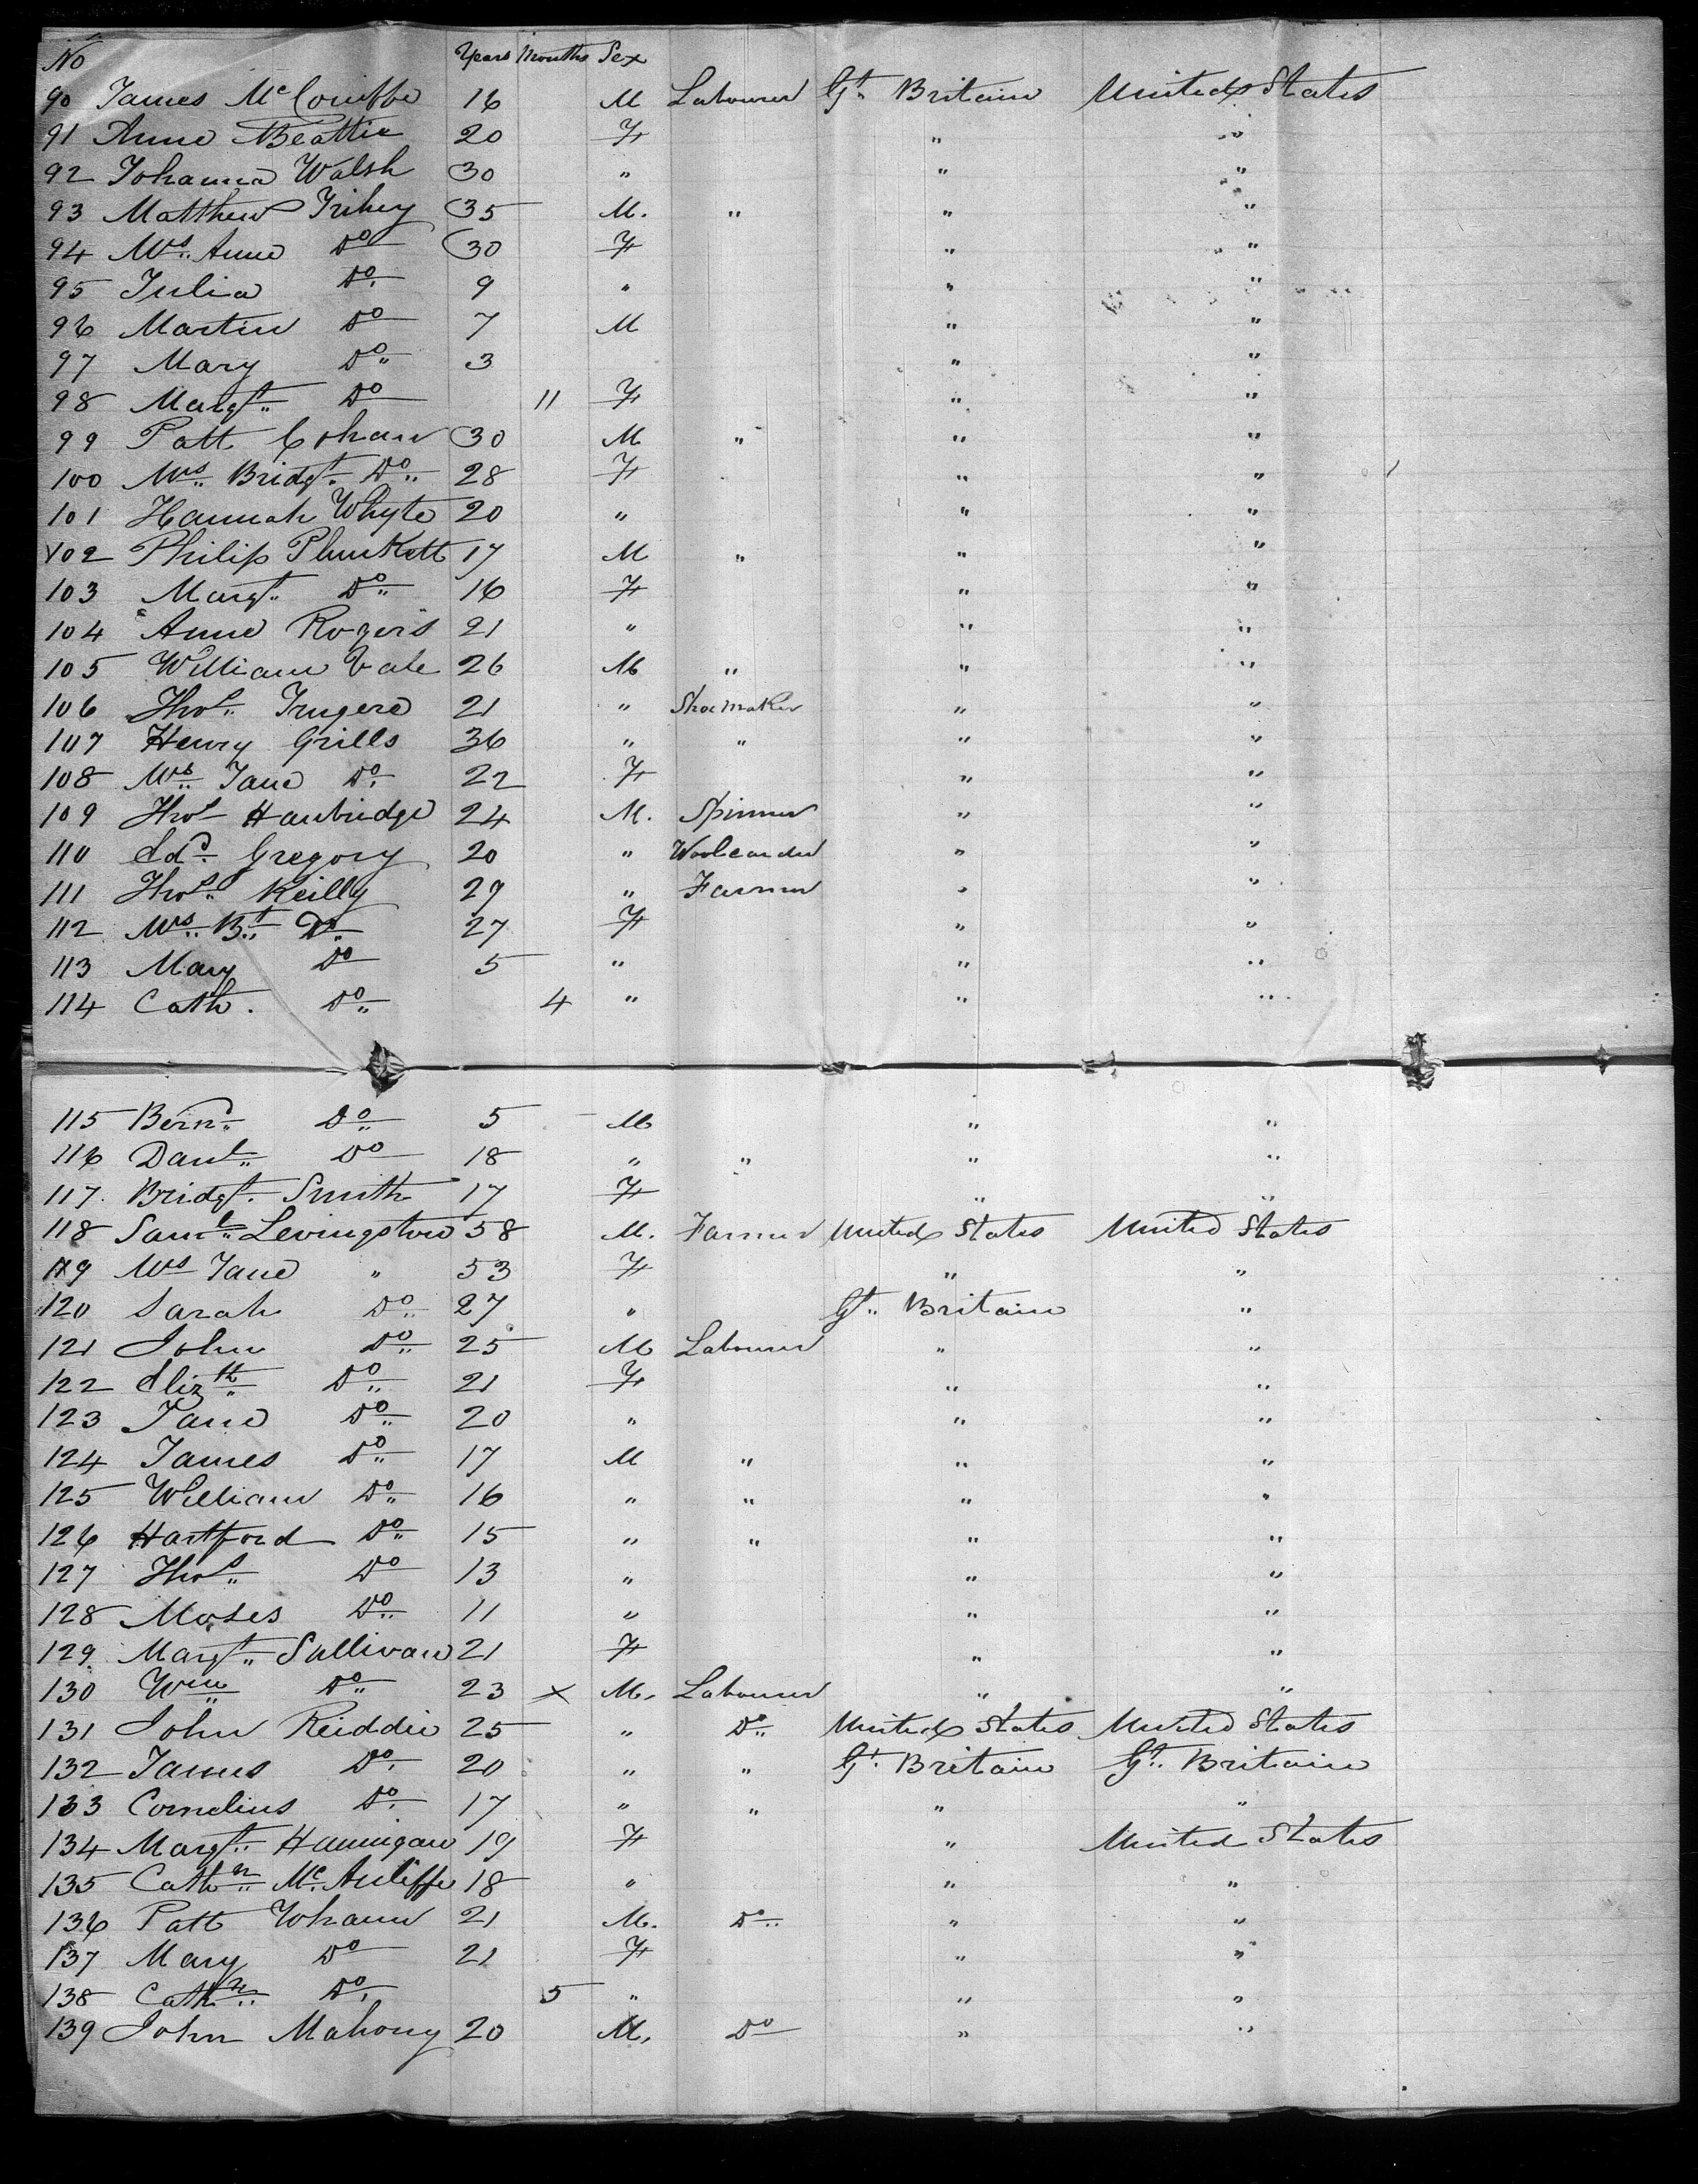 No Years Months Sex
90 James McConiffe 16 M Labourer Gt. Britain United States
91 Anne Beattie 20 F " "
92 Johanna Walsh 30 " " "
93 Matthew Trihey 35 M. " " "
94 Mrs. Anne Do 30 F " "
95 Julia Do. 9 " " "
96 Martin Do 7 M " "
97 Mary Do 3 " "
98 Margt. Do 11 F " "
99 Patt Cohan 30 M " " "
100 Mrs. Bridgt. Do 28 F " "
101 Hannah Whyte 20 " " "
102 Philip Plunkett 17 M " " "
103 Margt. Do 16 F " "
104 Anne Rogers 21 " " "
105 William Vale 26 M " " "
106 Thos. 21 " Shoemaker " "
107 Henry Grills 36 " " " "
108 Mrs. Jane Do. 22 F " "
109 Thos Hanbridge 24 M. Spinner " "
110 Edd. Gregory 20 " Woolcarder " "
111 Thos. Reilly 29 " Farmer " "
112 Mrs. Bt. Do 27 F " "
113 Mary Do 5 " " "
114 Cath. Do 4 " " "
115 Bernd. Do 5 M " "
116 Danl. Do 18 " " " "
117. Bridgt. Smith 17 F " "
118 Saml. Levingston 58 M. Farmer United States United States
119 Mrs Jane " 53 F " "
120 Sarah Do 27 " Gt. Britain "
121 John Do 25 M Labourer " "
122 Elizth. Do 21 F " "
123 Jane Do 20 " " "
124 James Do 17 M " " "
125 William Do 16 " " " "
126 Hartford Do 15 " " " "
127 Thos. Do 13 " " "
128 Moses Do 11 " " "
129. Margt. Sullivan 21 F " "
130 Wm Do 23 x M. Labourer " "
131 John Reiddie 25 " Do United States United States
132 James Do. 20 " " Gt. Britain Gt. Britain
133 Cornelius Do. 17 " " " "
134 Margt. Hannigan 19 F " United States
135 Cathn. Mc.Auliffe 18 " " "
136 Patt 21 M. Do " "
137 Mary Do 21 F " "
138 Cathn. Do. 5 " " "
139 John Mahony 20 M. Do " "